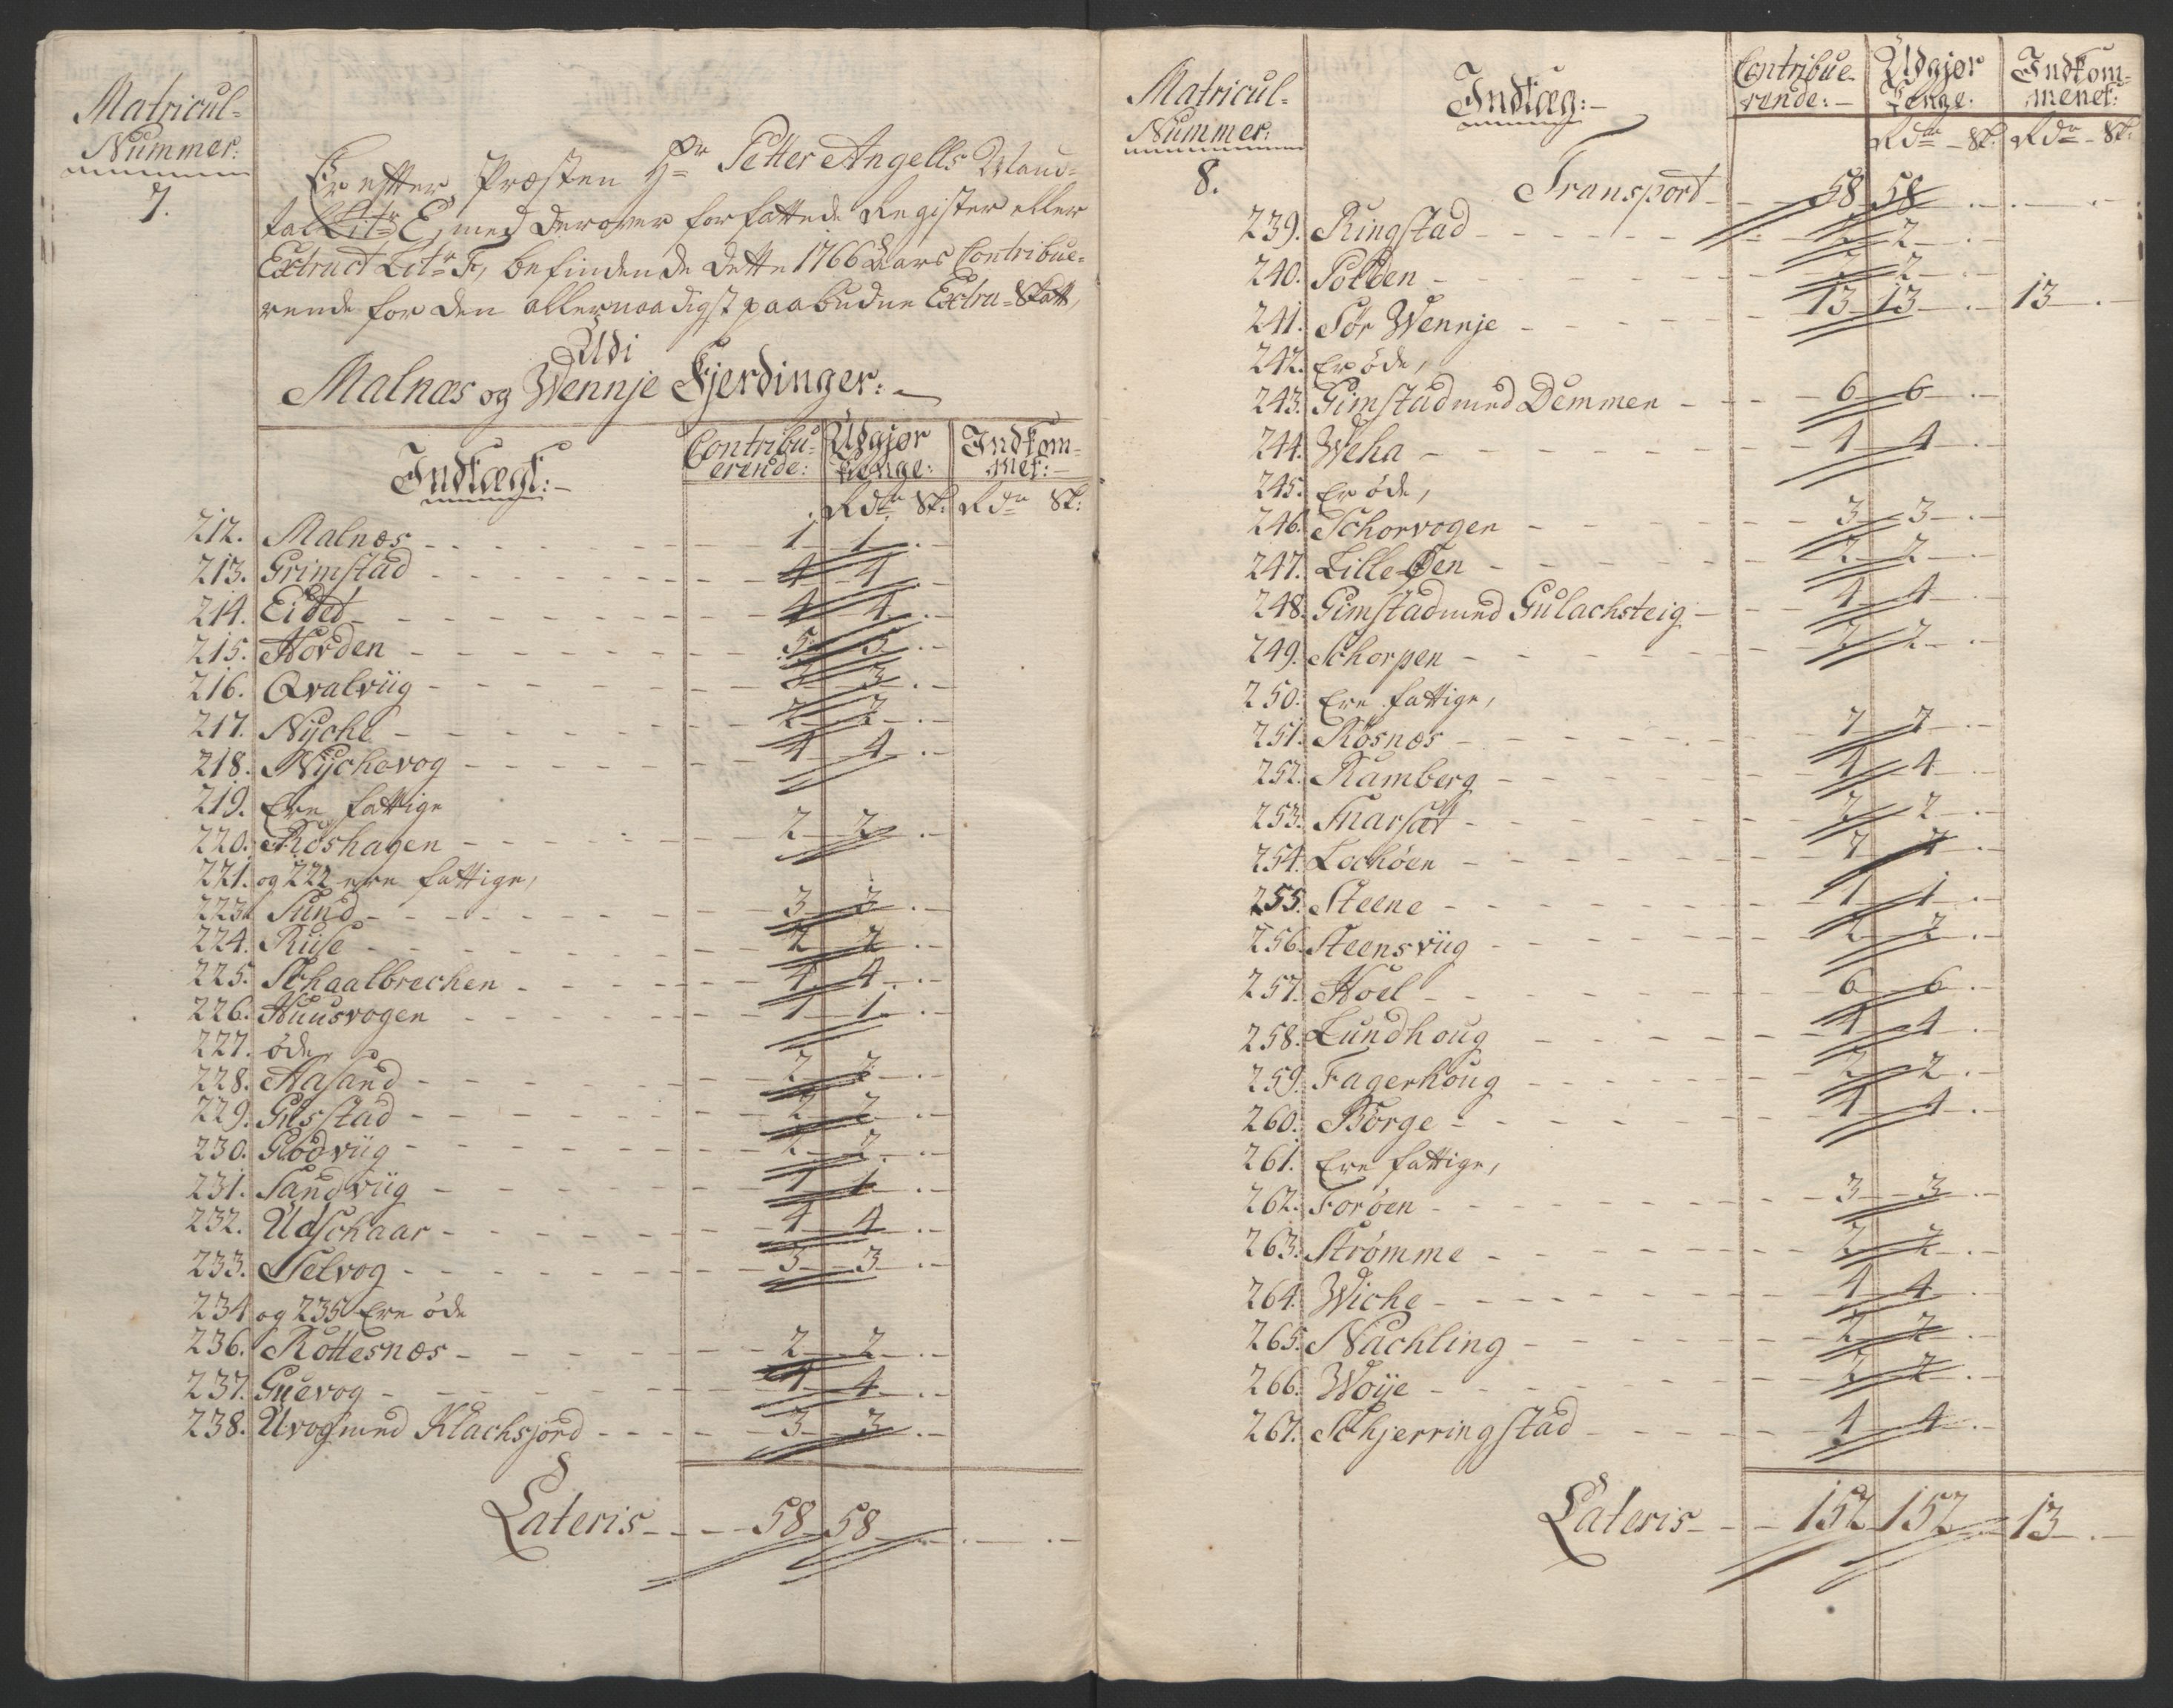 Matricul-
Nummer:
7.
Er efter Præsten Hr Petter Angells Mand-
tal Litr E, med derover forfattede Register eller
Extract Litr F, befindende dette 1766 Aars Contribue-
rende for den allernaadigst paabudne Extra-Skatt,
Udi
Malnæs og Wennje Fjerdinger:
Indtægt: Contribu- erende: Udgjør Penge: Indkom- met:
Rdr Sk: Rdr Sk:
212. Malnæs 1 1
213. Grimstad 4 4
214. Eidet 4 4
215. Horden 5 5
216. Qvalviig 3 3
217. Nyche 2 2
218. Nychevog 4 4
219. Ere fattige
220. Roshagen 2 2
221. og 222 ere fattige,
223. Sund 3 3
224. Riise 2 2
225. Schaalbrechen 4 4
226. Huusvogen 1 1
227. öde,
228. Aasand 2 2
229. Gusstad 2 2
230. Glodviig 2 2
231. Sandviig 1 1
232. Udschaar 4 4
233. Selvog 3 3
234 og 235 Ere öde
236. Rottesnæs 2 2
237. Guevog 4 4
238. Uvog med Klachsjord 3 3
Lateris 58 58
Matricul-
Nummer:
8.
Indtæg: Contribue- rende: Udgjør Penge: Indkom- menet:
Rdr Sk: Rdr Sk:
Transport 58 58
239. Ringstad 2 2
240. Polden 2 2
241. Sör Wennje 13 13 13
242. Er öde,
243. Gimstad med Demmen 6 6
244. Weha 4 4
245. Er öde,
246. Schorvogen 3 3
247. Lille Øen 2 2
248. Gimstad med Gulachsteig 4 4
249. Schorpen 2 2
250. Ere fattige,
251. Rösnæs 7 7
252. Ramberg 4 4
253. Snarsæt 2 2
254. Lochöen 7 7
255. Steene 1 1
256. Steensviig 2 2
257. Hoel 6 6
258. Lundhoug 4 4
259. Fagerhoug 2 2
260. Börge 4 4
261. Ere fattige,
262. Foröen 3 3
263. Strömme 2 2
264. Wiche 4 4
265. Nachling 2 2
266. Woije 2 2
267. Schjerringstad 4 4
Lateris 152 152 13